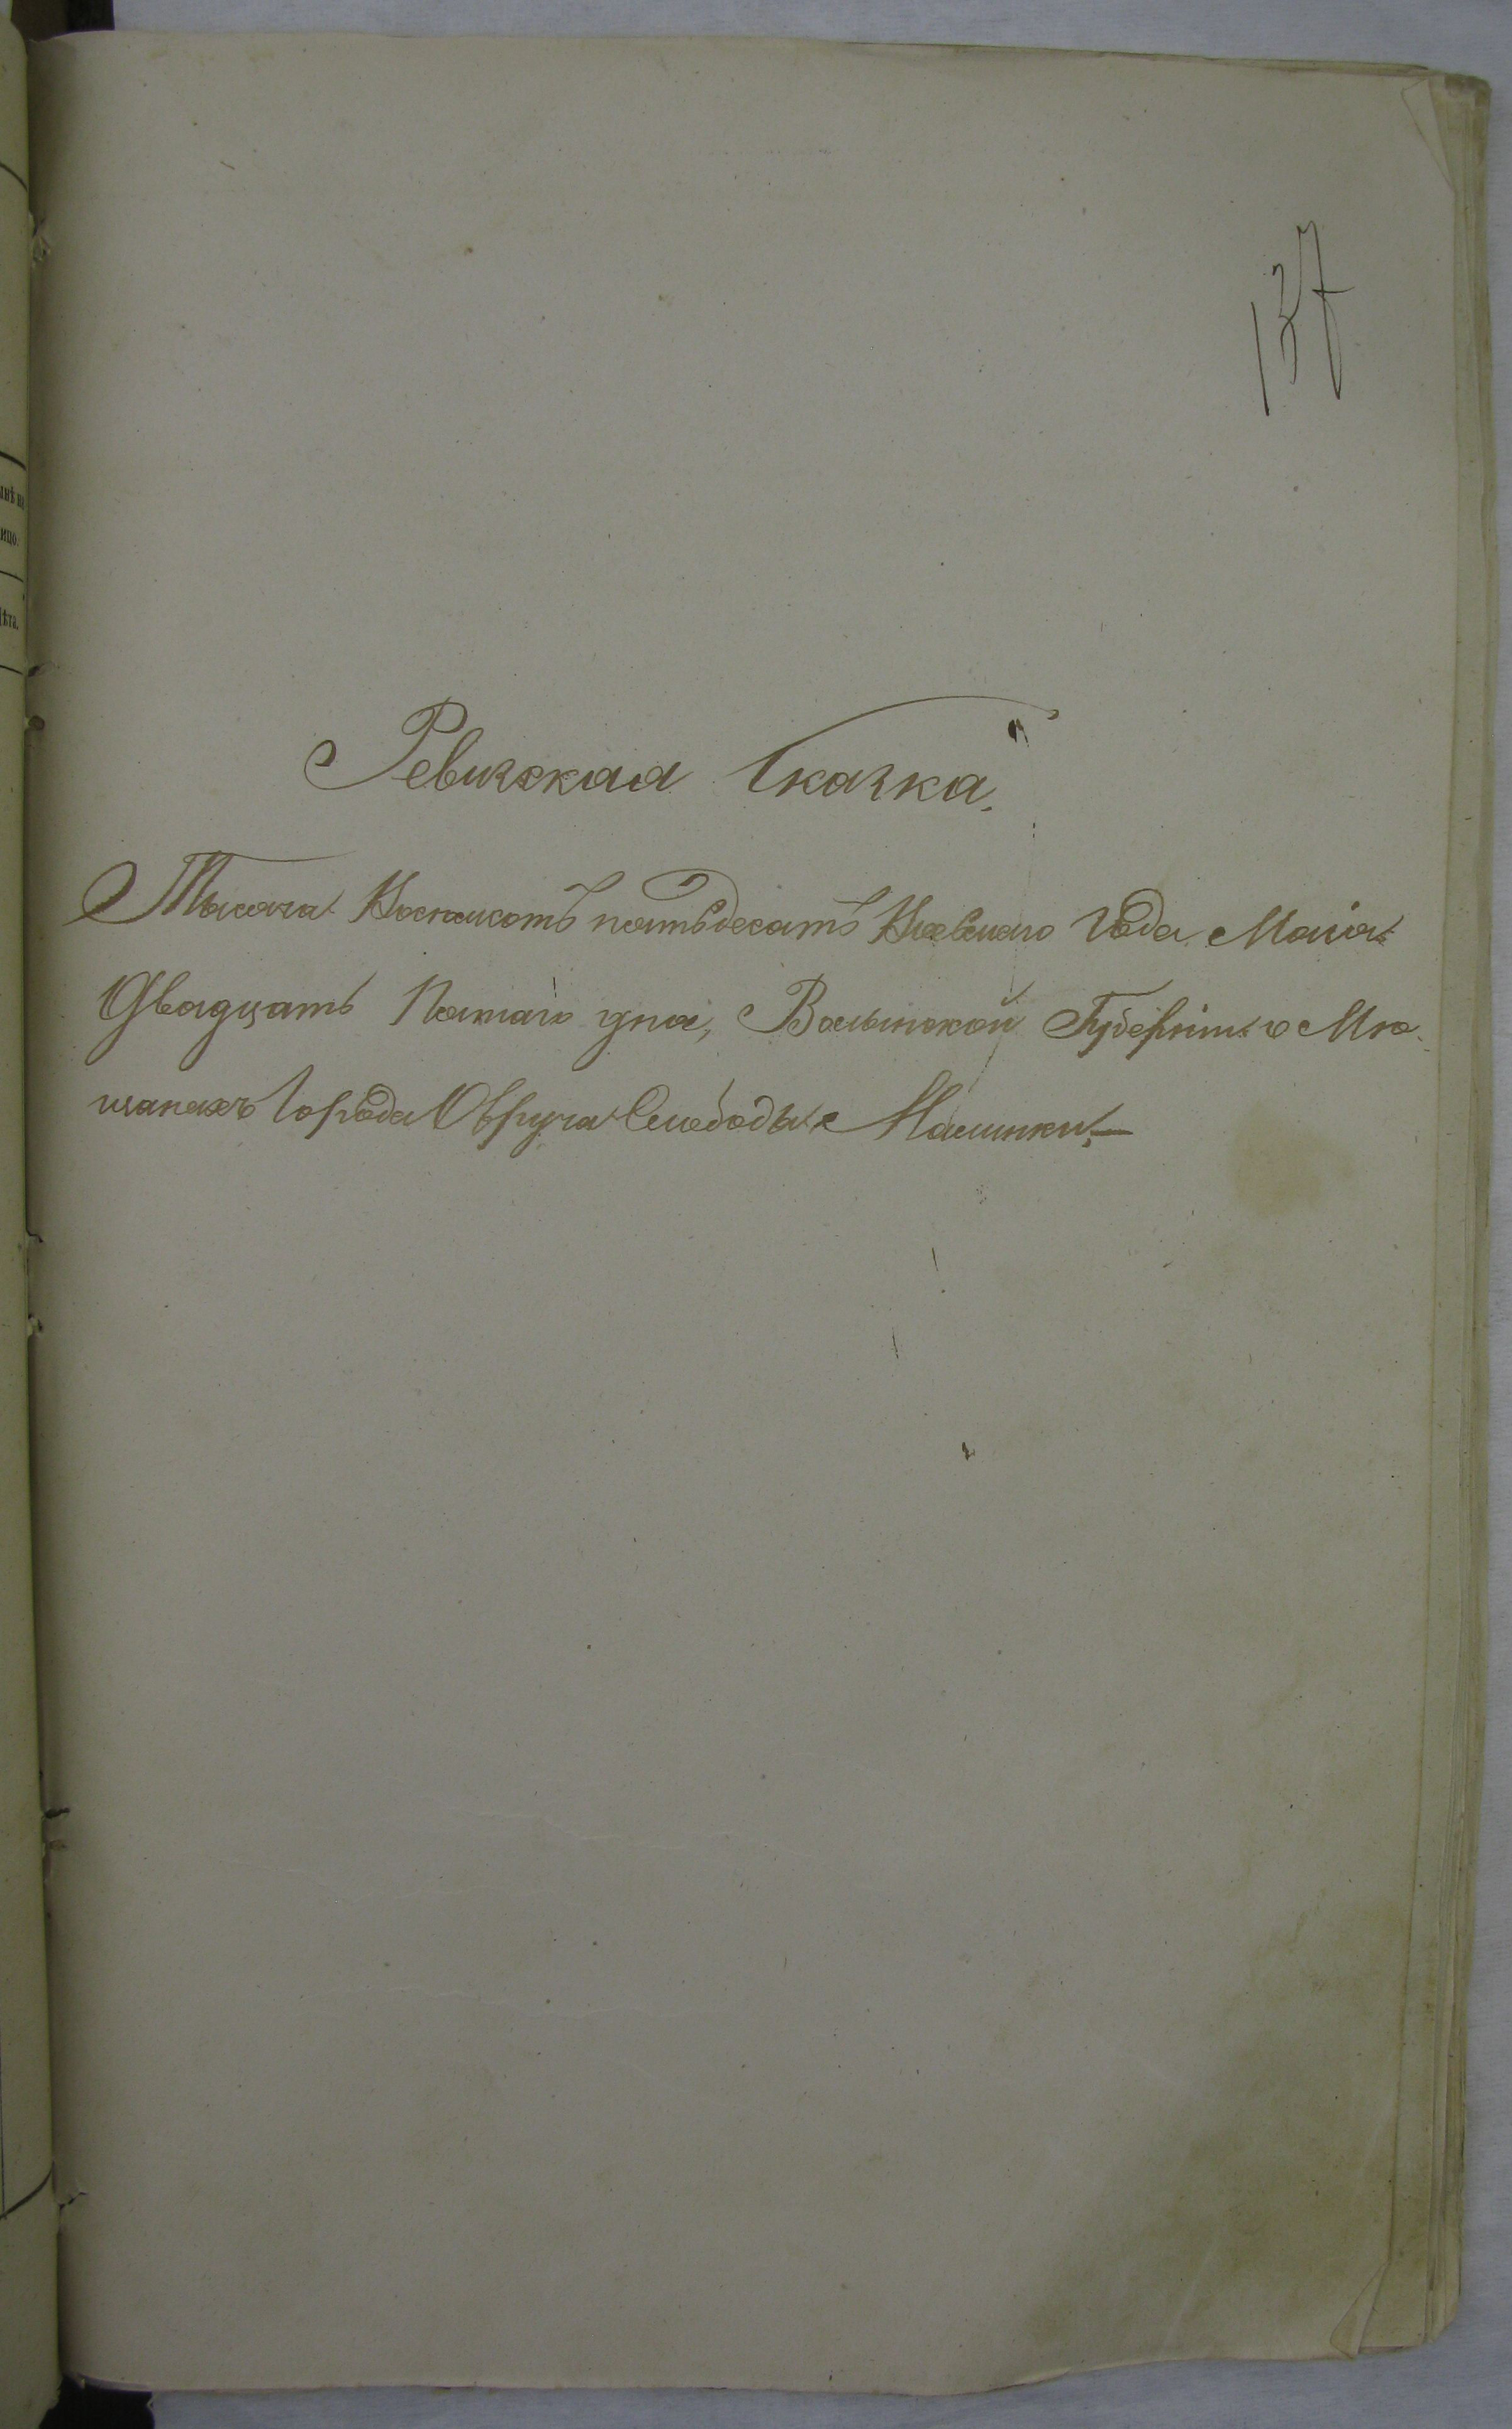 137
Ревизская Сказка.
Тысяча Восемьсотъ пятьдесятъ Восьмаго Года Маія
Двадцать Пятаго дня, Волынской Губерніи о Мѣ-
щанахъ Города Овруча Слободы Малинки.—